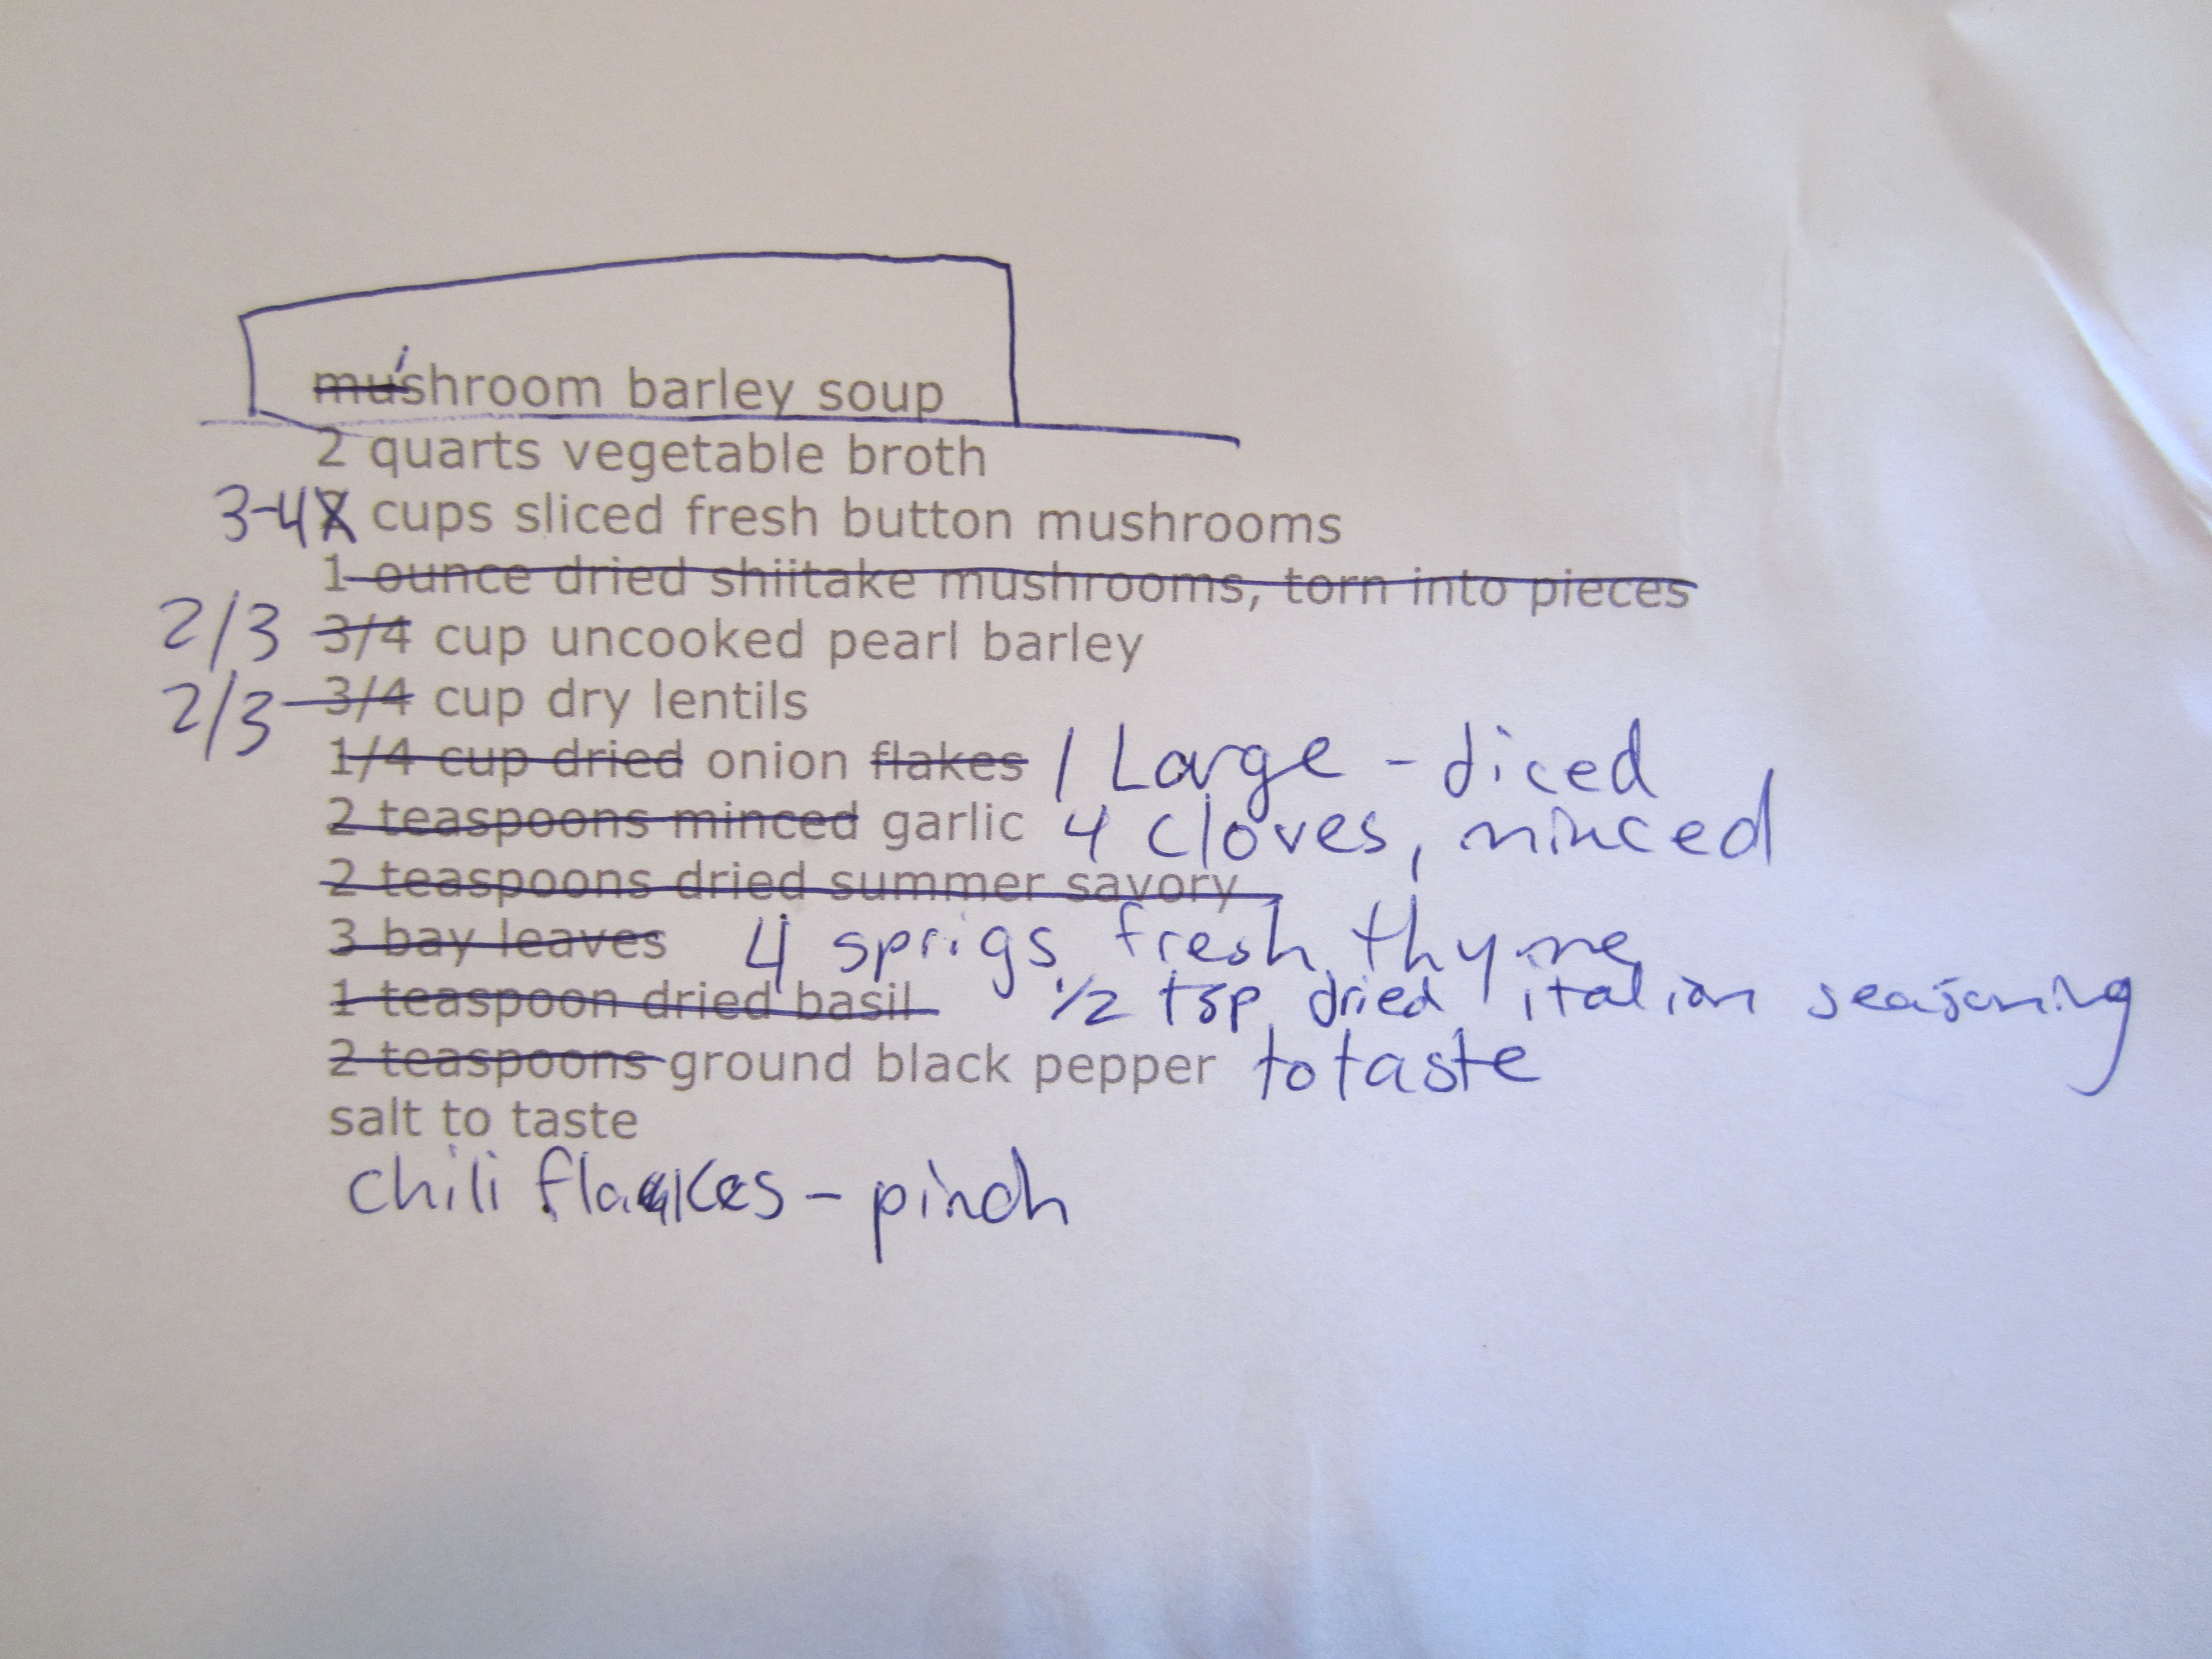 mushroom barley soup
2 quarts vegetable broth
3-4 2 cups sliced fresh button mushrooms
1 ounce dried shiitake mushrooms, torn into pieces
2/3 3/4 cup uncooked pearl barley
2/3 3/4 cup dry lentils
1/4 cup dried onion flakes 1 Large - diced
2 teaspoons minced garlic 4 cloves, minced
2 teaspoons dried summer savory
3 bay leaves 4 sprigs fresh thyme
1 teaspoon dried basil 1/2 tsp dried italian seasoning
2 teaspoons ground black pepper to taste
salt to taste
chili flakes - pinch